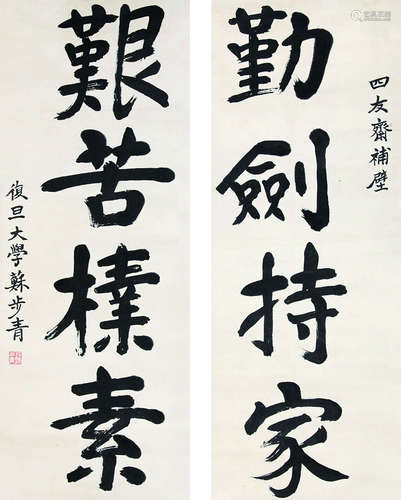 四友齋補壁
勤劍持家
艱苦樸素
復旦大學蘇步青